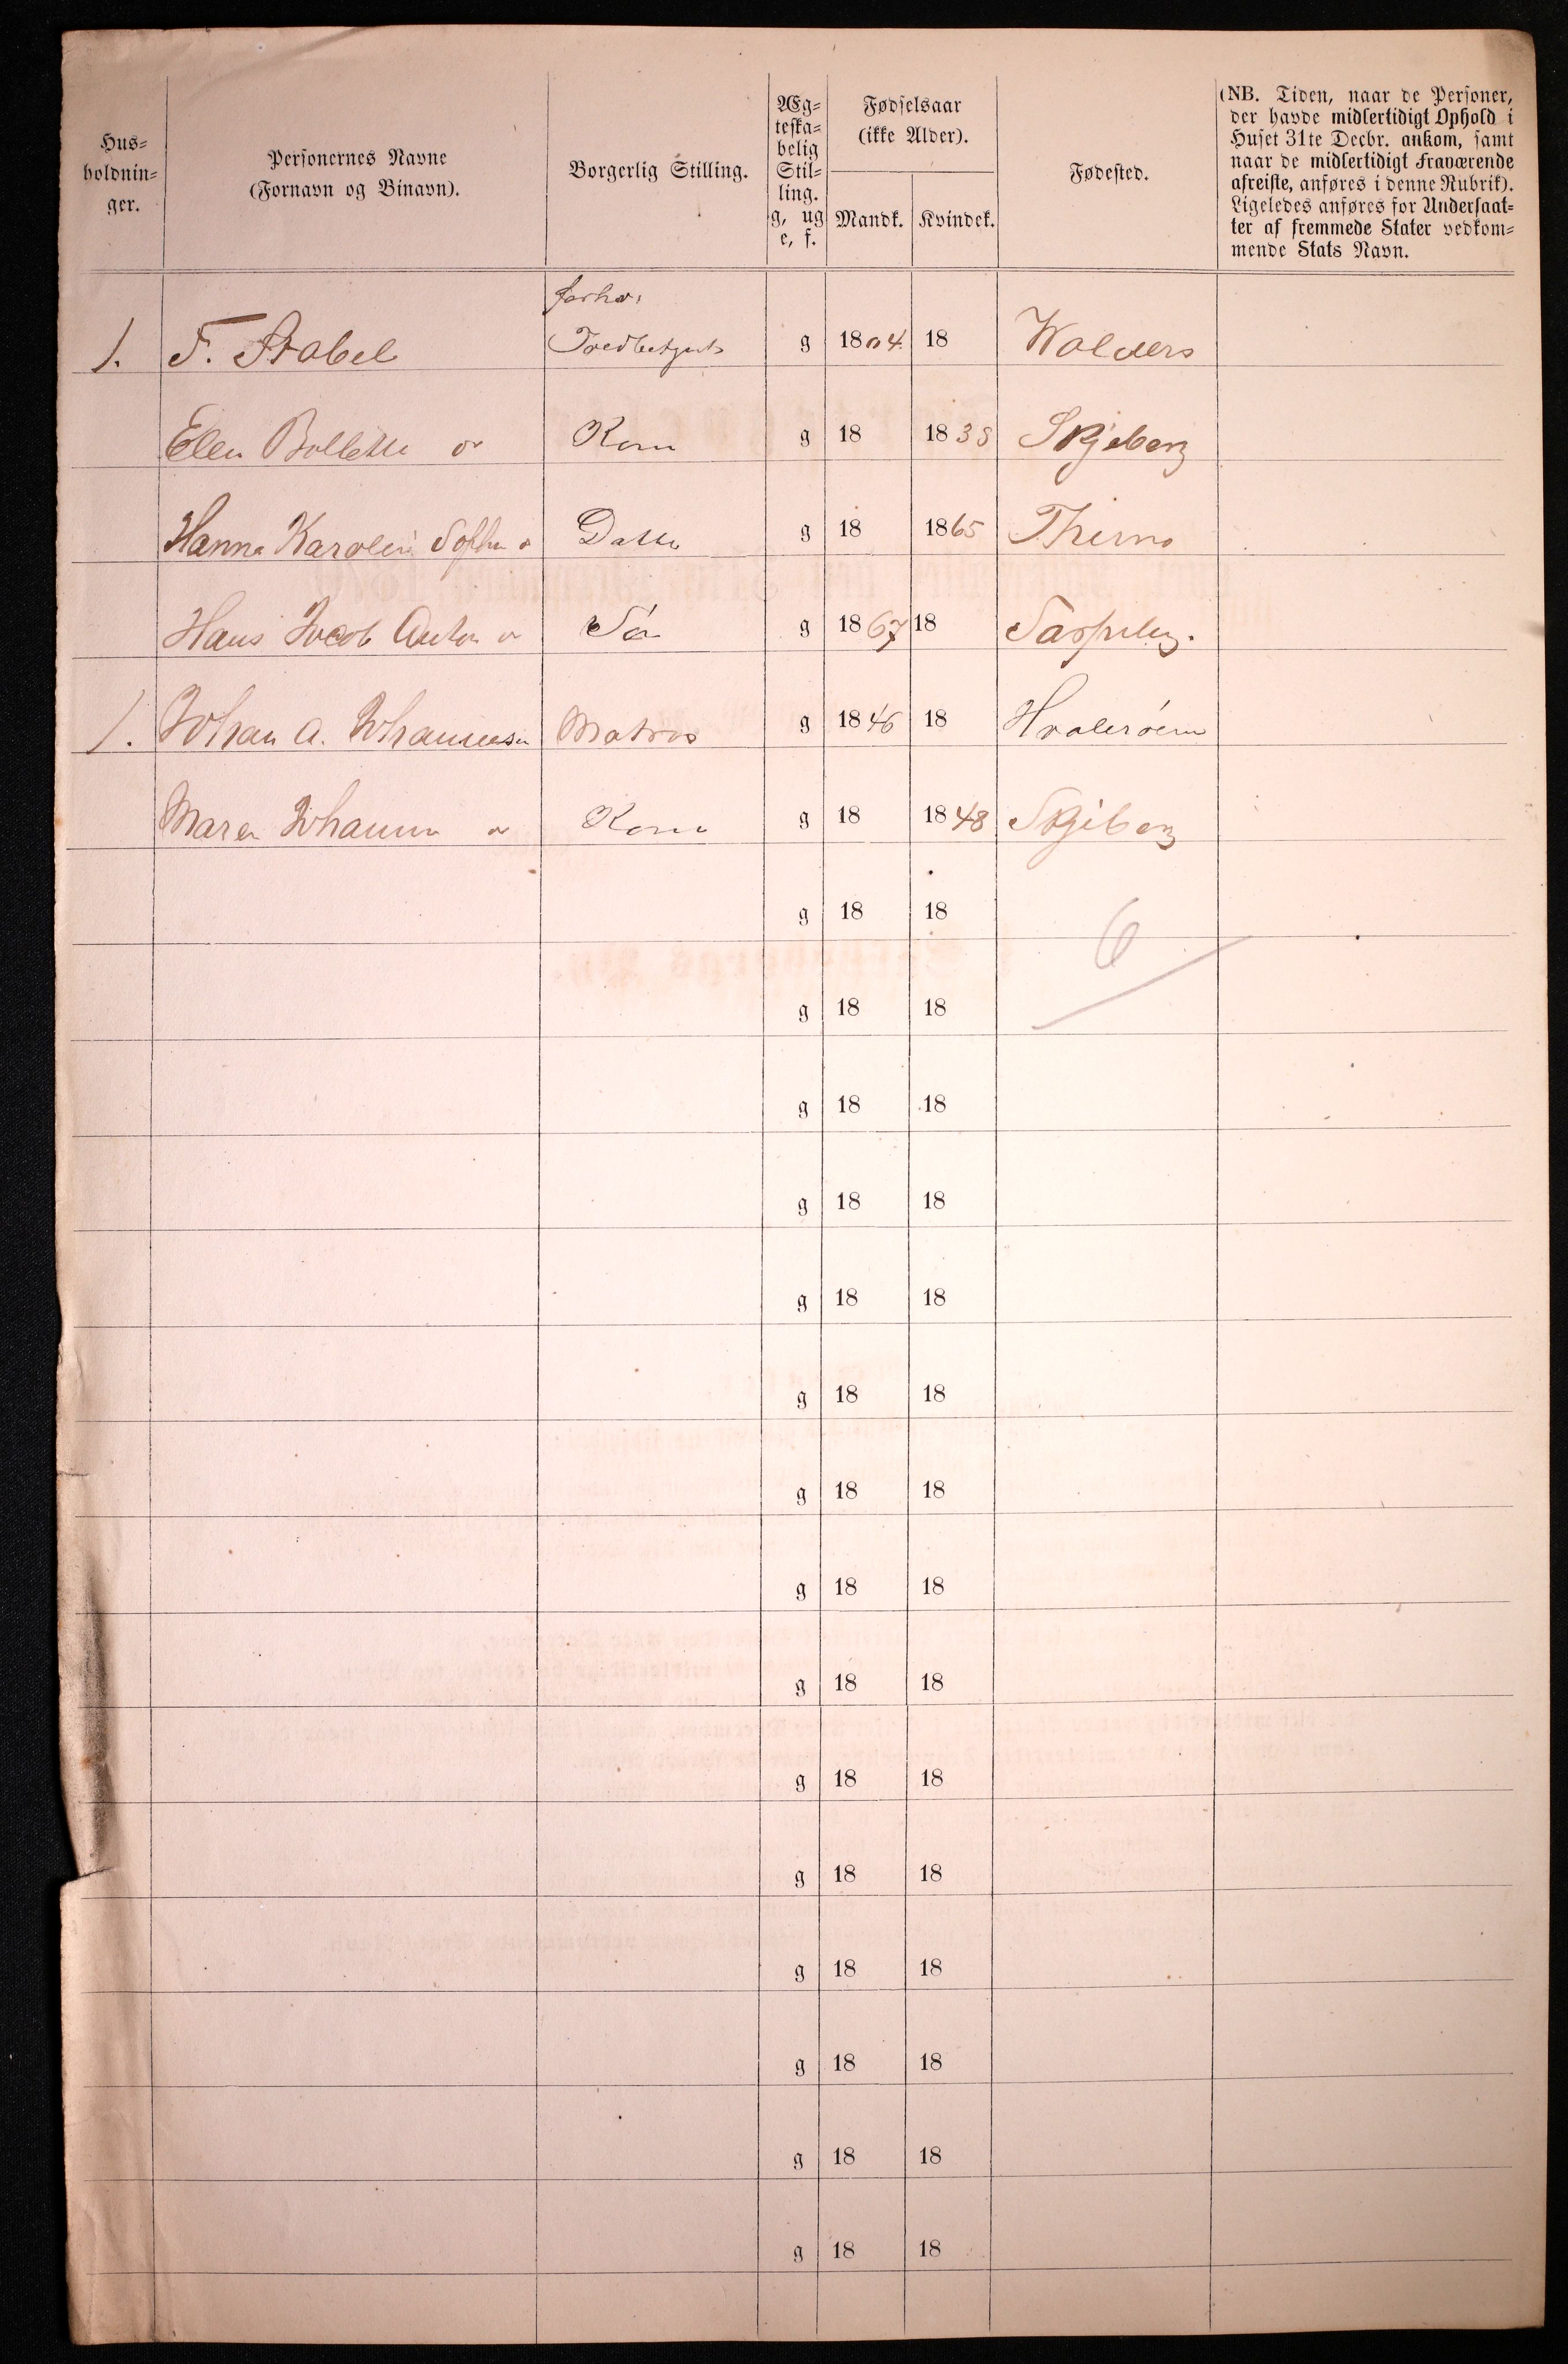 Hus-
holdnin-
ger.
Personernes Navne
(Fornavn og Binavn).
Borgerlig Stilling.
Æg-
teska-
belig
Stil-
ling.
g, ug
e, f.
Fødselsaar
(ikke Alder).
Mandk. Kvindek.
Fødested.
(NB. Tiden, naar de Personer,
der havde midlertidigt Ophold i
Huset 31te Decbr. ankom, samt
naar de midlertidigt Fraværende
afreiste, anføres i denne Rubrik).
Ligeledes anføres for Undersaat-
ter af fremmede Stater vedkom-
mende Stats Navn.
forhv:
1. F. Stabel g 1804. 18 Walders
Elen Bollette Kone g 18 1838 Skjeberg
Hanna Karolin Sofhu Datte g 18 1865 Thuno
Hans Jacob Anton Sön g 1867 18 Sarpsbg.
1. Johan A. Johannesen Matros g 1846 18 Hvalerøern
Maren Johanne Kone g 18 1848 Skjeberg
g 18 18
6
g 18 18
g 18 18
g 18 18
g 18 18
g 18 18
g 18 18
g 18 18
g 18 18
g 18 18
g 18 18
g 18 18
g 18 18
g 18 18
g 18 18